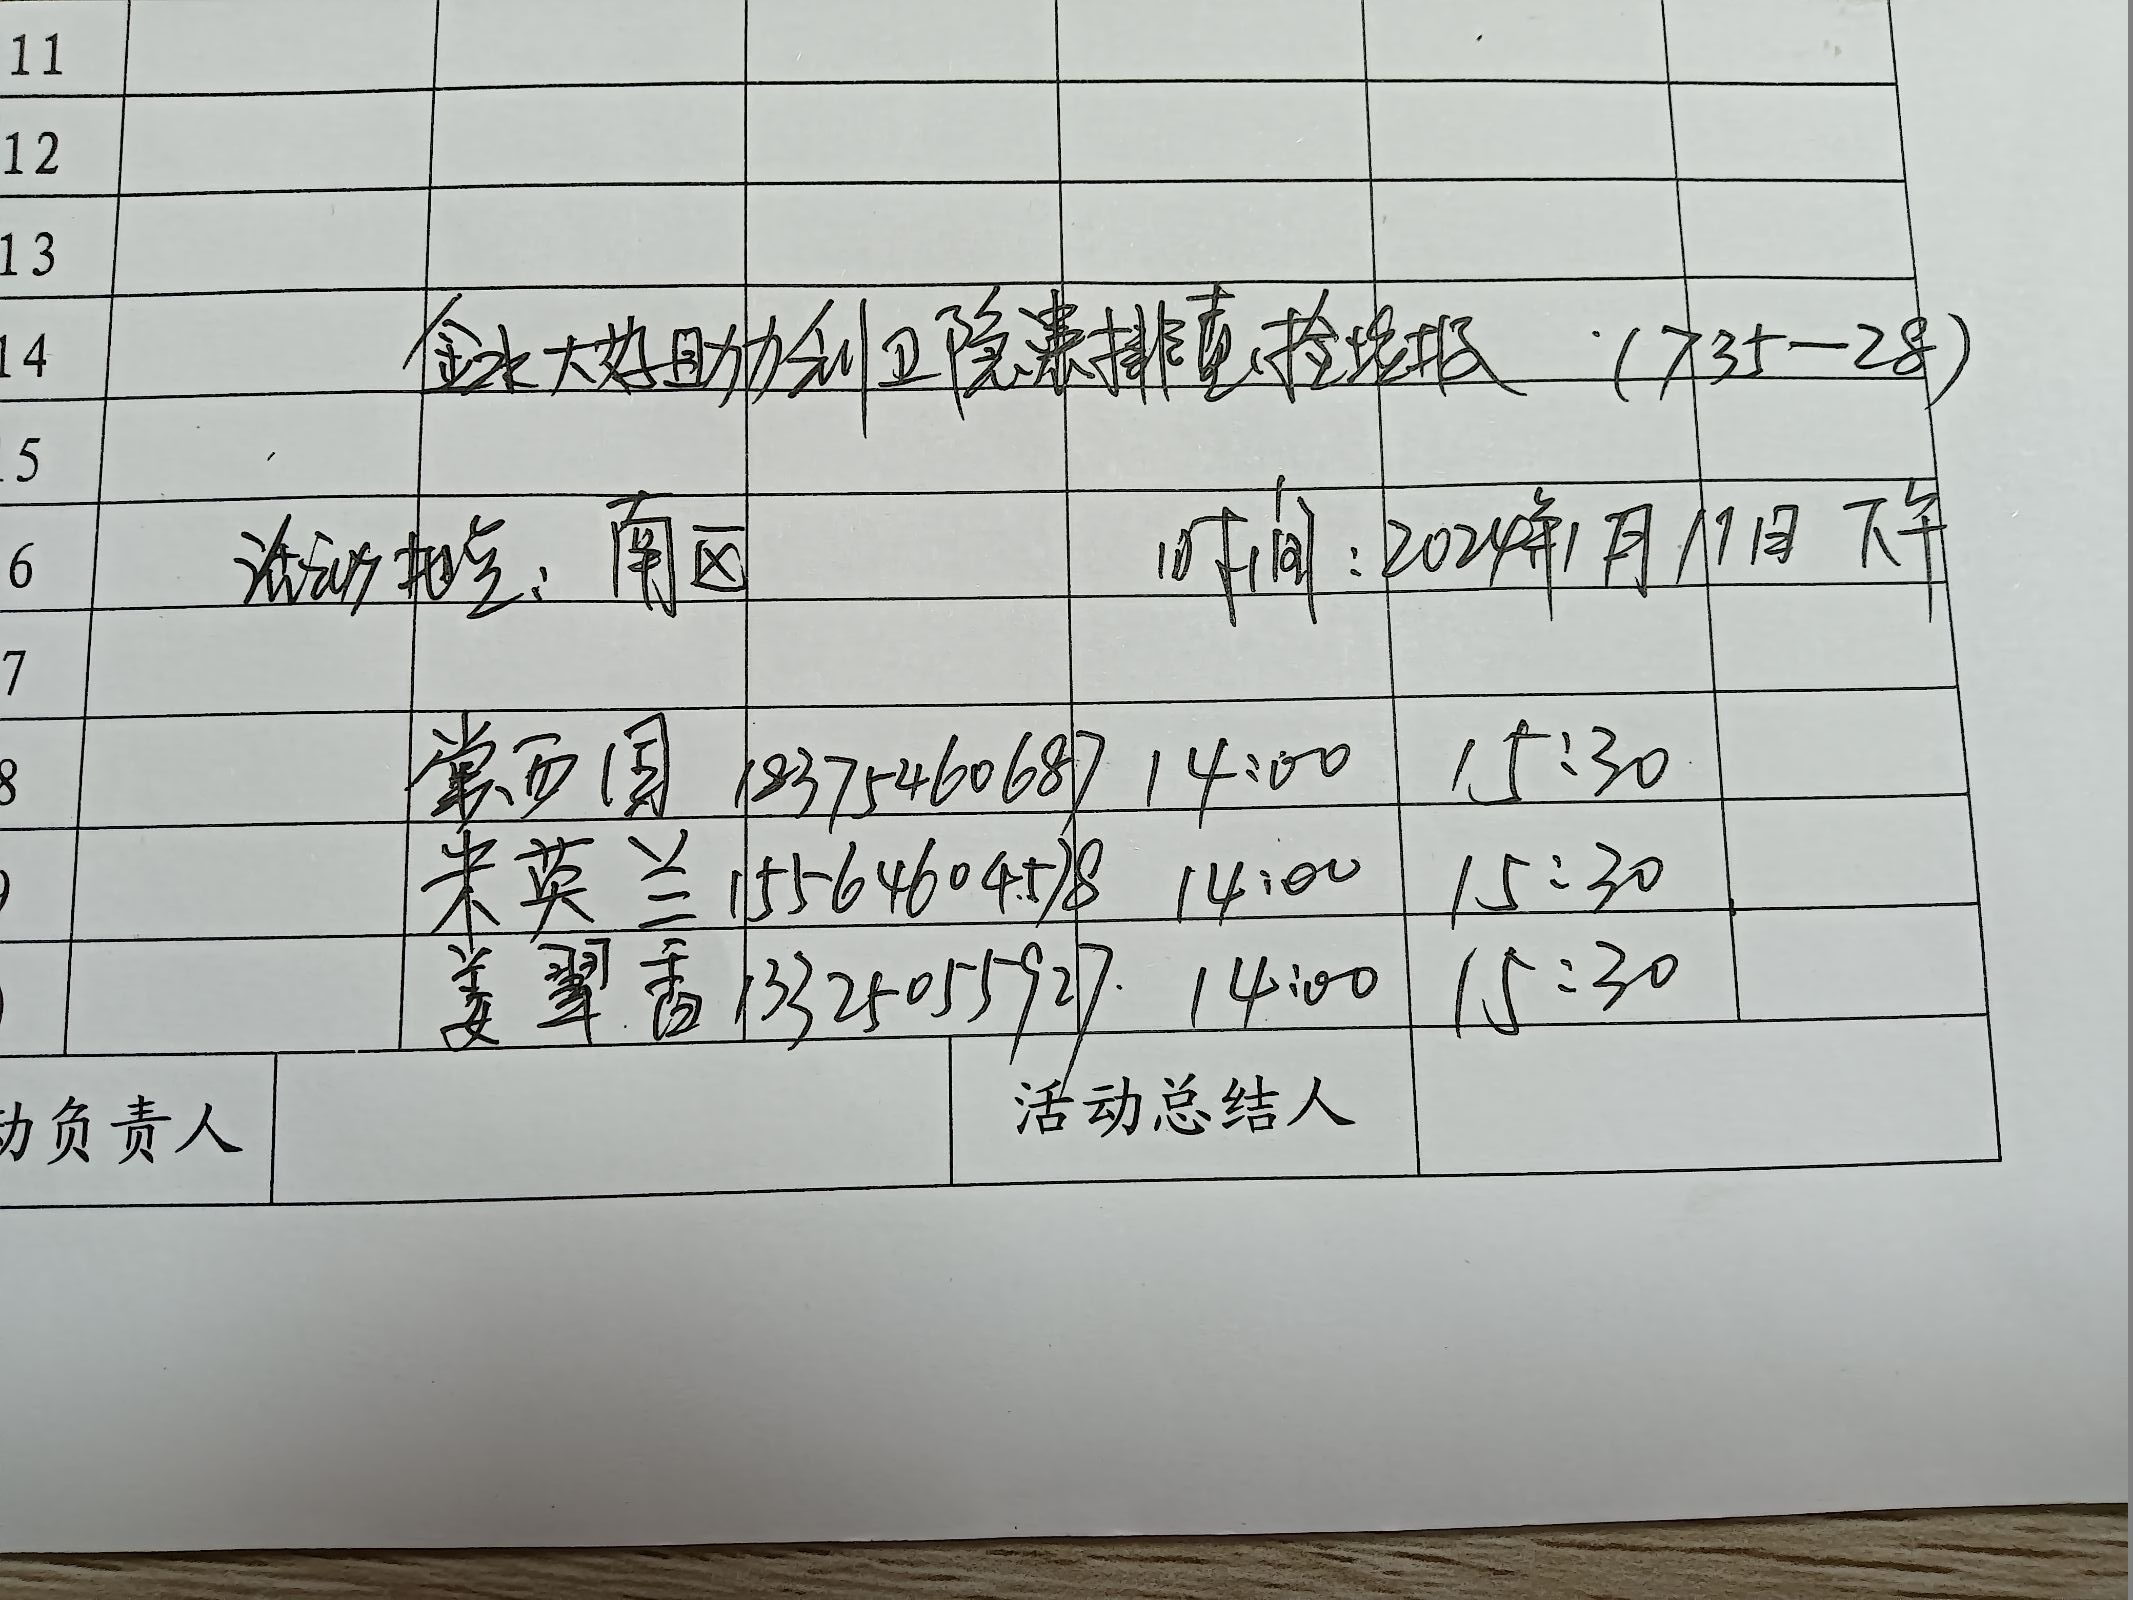 11
12
13
14 金水大好助力创卫隐患排查捡垃圾 (735-28)
5
6 活动地点：南区 时间：2024年1月19日 下午
7
8 常西国 18375460687 14:00 15:30
米英兰 15564604578 14:00 15:30
姜翠香 13325055927 14:00 15:30
动负责人 活动总结人